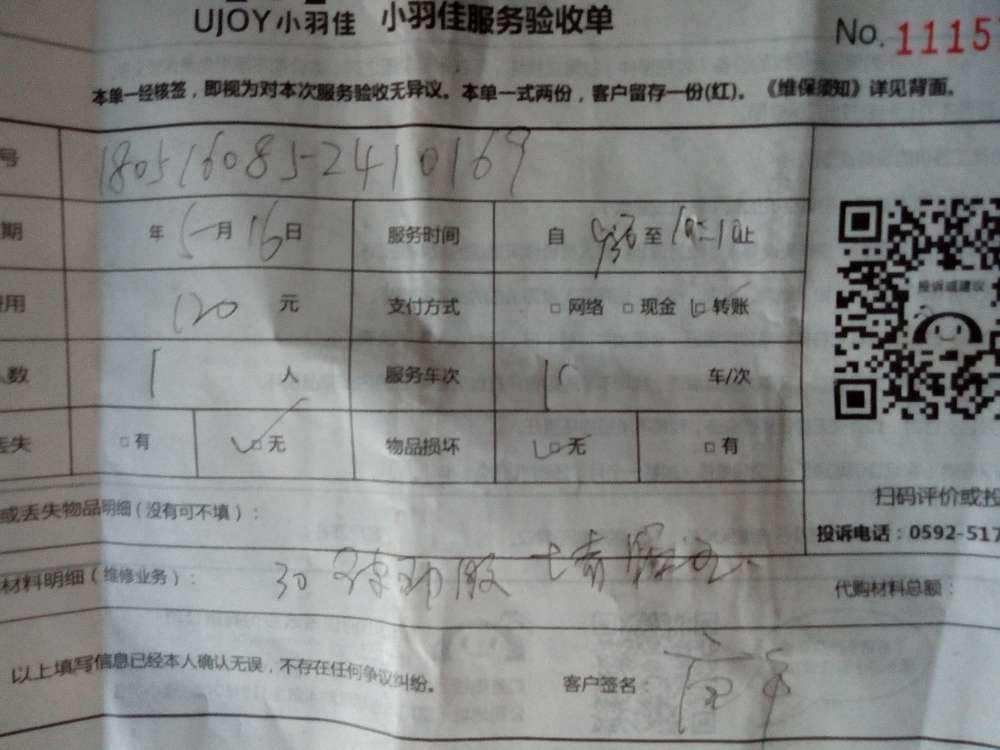 UJOY小羽佳 小羽佳服务验收单 No. 1115
本单一经核签，即视为对本次服务验收无异议。本单一式两份，客户留存一份(红)。《维保须知》详见背面。
号 180516085-2410169
期 年 5月 16日 服务时间 自 至 止
费用 120 元 支付方式 □网络 □现金 □转账
人数 1 人 服务车次 车/次
丢失 □有 □无 物品损坏 □无 □有
投诉或建议
扫码评价或投
或丢失物品明细(没有可不填)：
投诉电话：0592-517
材料明细(维修业务)：30 代购材料总额：
以上填写信息已经本人确认无误，不存在任何争议纠纷。 客户签名：